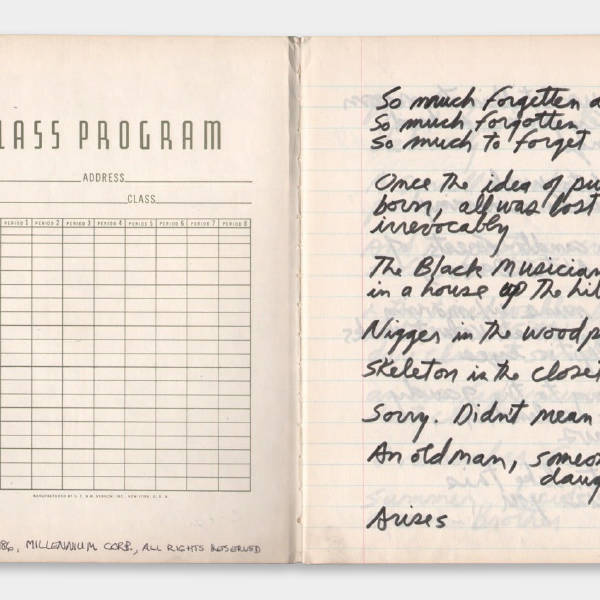 LASS PROGRAM
ADDRESS
CLASS
PERIOD 1 PERIOD 2 PERIOD 3 PERIOD 4 PERIOD 5 PERIOD 6 PERIOD 7 PERIOD 8
86, MILLENNIUM CORP., ALL RIGHTS RESERVED
So much forgetten a
So much forgotten
So much to forget
Once the idea of pu
born, all was lost
irrevocably
The Black Musician
in a house up the hil
Nigger in the woodp
Skeleton in the closet
Sorry. Didnt mean
An old man, someo
daug
Arises